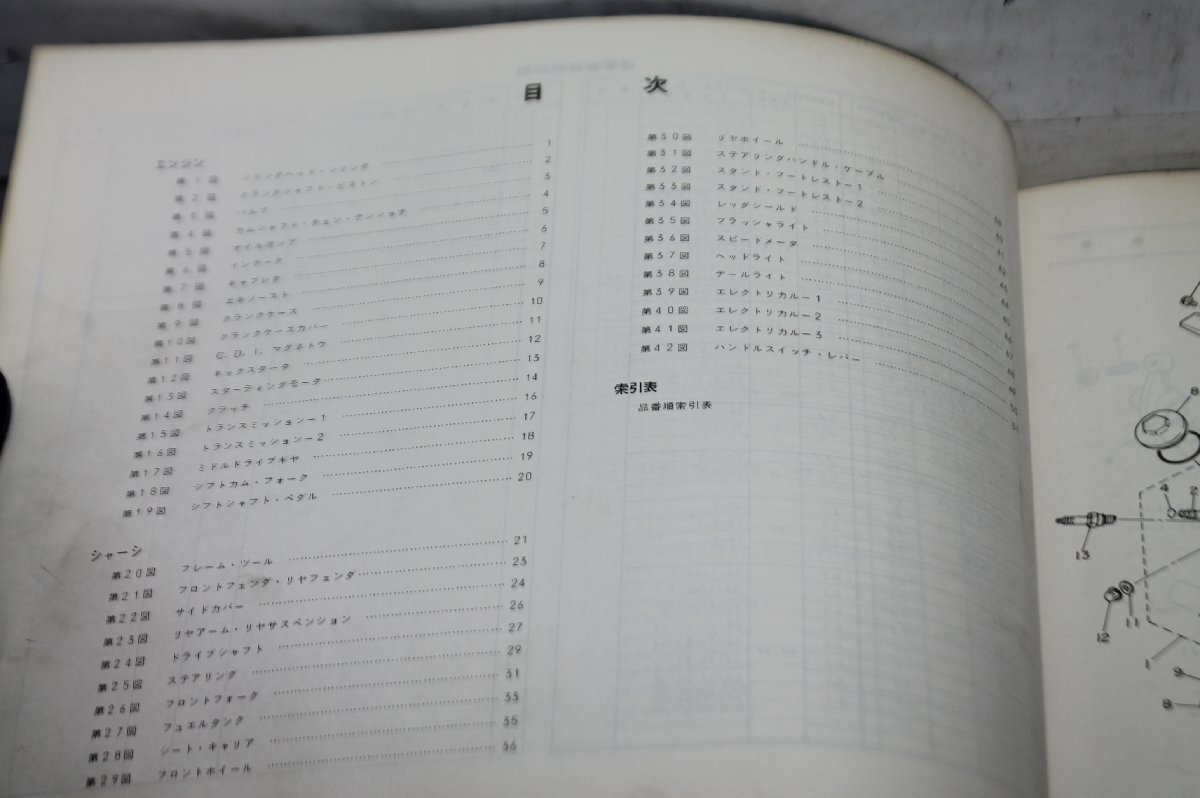 目 次
エンジン
第1図 シリンダヘッド・シリンダ 1
第2図 クランクシャフト・ピストン 2
第3図 バルブ 3
第4図 カムシャフト・チェン・テンショナ 4
第5図 オイルポンプ 5
第6図 インテーク 6
第7図 キャブレタ 7
第8図 エキゾースト 8
第9図 クランクケース 9
第10図 クランクケースカバー 10
第11図 C.D.I.マグネトウ 11
第12図 キックスタータ 12
第13図 スターティングモータ 13
第14図 クラッチ 14
第15図 トランスミッション－1 16
第16図 トランスミッション－2 17
第17図 ミドルドライブギヤ 18
第18図 シフトカム・フォーク 19
第19図 シフトシャフト・ペダル 20
シャーシ
第20図 フレーム・ツール 21
第21図 フロントフェンダ・リヤフェンダ 23
第22図 サイドカバー 24
第23図 リヤアーム・リヤサスペンション 26
第24図 ドライブシャフト 27
第25図 ステアリング 29
第26図 フロントフォーク 31
第27図 フュエルタンク 33
第28図 シート・キャリア 35
第29図 フロントホイール 36
第30図 リヤホイール 38
第31図 ステアリングハンドル・ケーブル 40
第32図 スタンド・フートレスト－1 41
第33図 スタンド・フートレスト－2 42
第34図 レッグシールド 43
第35図 フラッシャライト 44
第36図 スピードメータ 45
第37図 ヘッドライト 46
第38図 テールライト 47
第39図 エレクトリカル－1 48
第40図 エレクトリカル－2 49
第41図 エレクトリカル－3 50
第42図 ハンドルスイッチ・レバー 51
索引表
品番順索引表
6
4
2
13
12
11
1
9
8